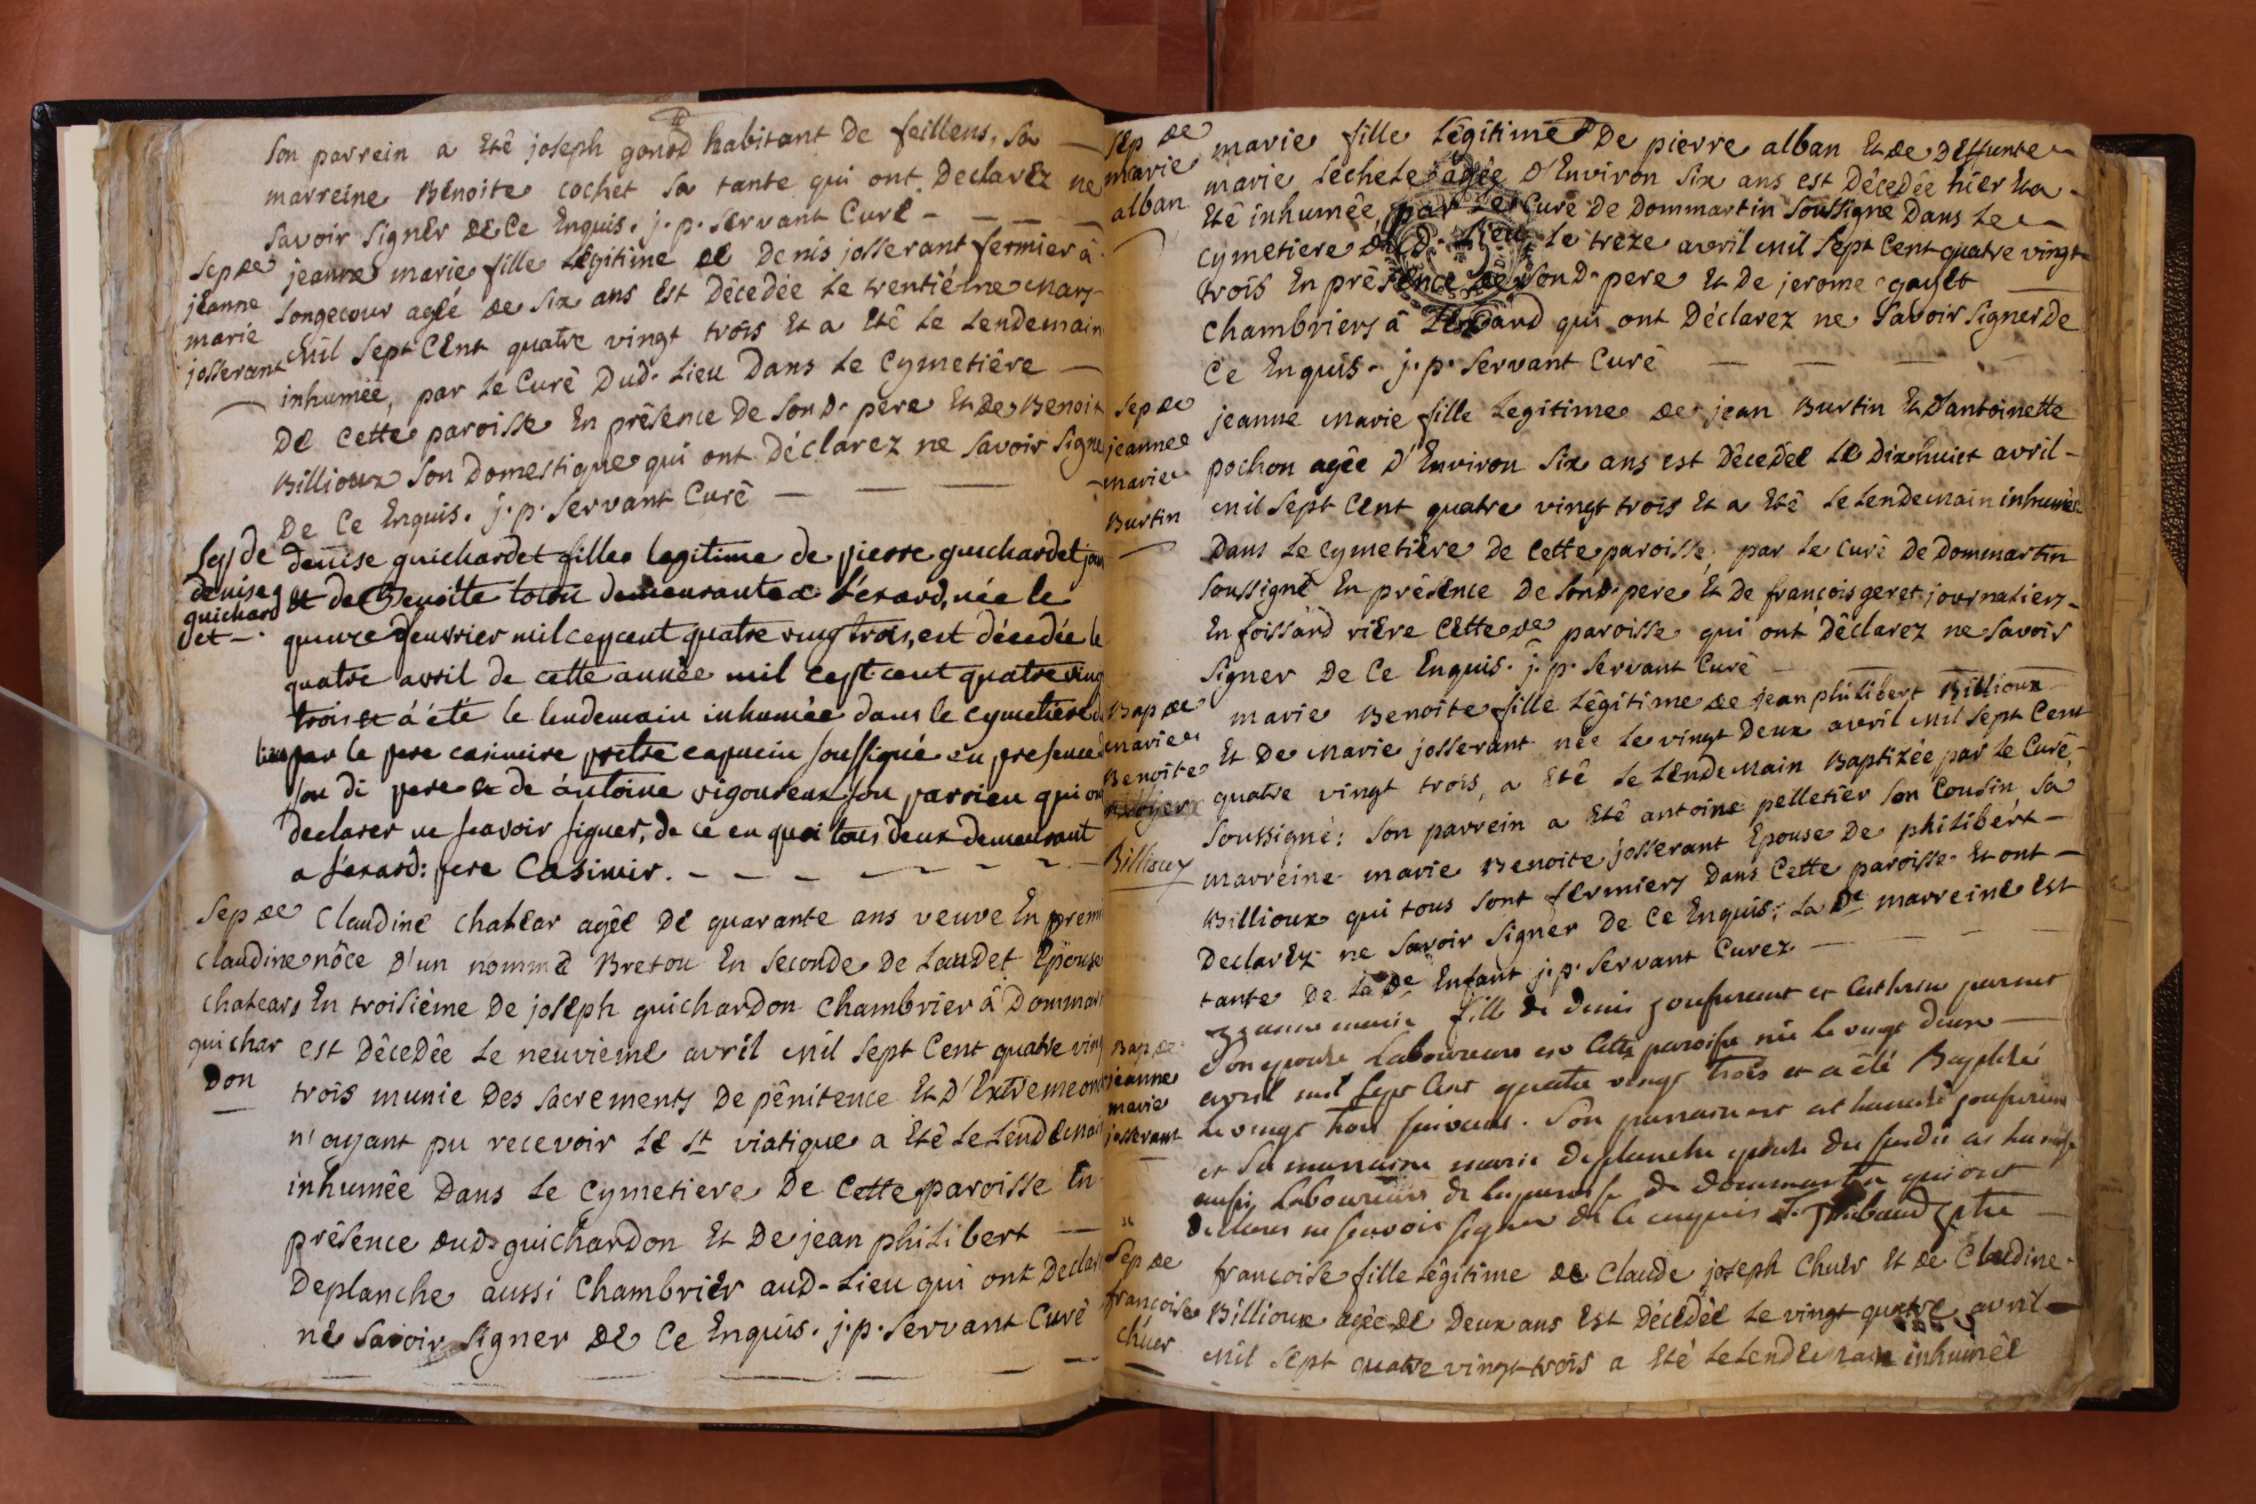 Son parrein a Etê joseph gonod habitant De feillens, Sa
marreine Benoite cochet Sa tante qui ont Declarez ne
Savoir Signer de Ce Enquis. j. p. Servant Curé
Sep de
jeanne
marie
josserant
jeanne marie fille Legitime de Denis josserant fermier à
Longecour ageé de Six ans Est Dêcedée Le trentiéme Mars
Mil Sept Cent quatre vingt trois Et a Etê Le Lendemain
inhumée, par Le Curé Dud. Lieu Dans Le Cymetiére
De Cette paroisse En prêsence De Son D. pere Et de Benoit
Billioux Son Domestique qui ont Déclarez ne Savoir Signe
De Ce Enquis. j. p. Servant Curê
Sep de
denise
guichard
et
denise guichardet fille legitime de pierre guichardet jour
et de Benoite demeurante a Lérard, née le
quinze feuvrier mil cepcent quatre ving trois, est décedée le
quatre avril de cette année mil cept cent quatre ving
trois et á été le lendemain inhumée dans le cymetiere
lieu par le pere casimire pretre capucin soussigné en presence
son di pere et de ántoine vigoureux son parrien qui on
declarer ne scavoir signer, de ce en quoi tous deux demeurant
a Lérard: pere Casimir.
Sep de
Claudine
Chatear
guichar
Don
Claudine Chatear agêe De quarante ans veuve En premi
nôce D'un nommé Breton En Seconde De Laudet Epouse
En troisiéme De joseph guichardon Chambrier â Dommar
est Dêcedêe Le neuvieme avril Mil Sept Cent quatre ving
trois munie Des Sacrements De pênitence Et D'Extrême onc
n'ayant pu recevoir Le St viatique a Etê Le Lendemain
inhumêe Dans Le Cymetiere De Cette paroisse En
prêsence dud. guichardon Et De jean philibert
Deplanche aussi Chambrier aud. Lieu qui ont Declar
ne Savoir Signer De Ce Enquis. j. p. Servant Curê
Sep de
marie
alban
marie fille Lêgitime De pierre alban Et de Deffunte
marie Lechele agée D'Environ Six ans est Dêcedêe hier Et a
Etê inhumêe, par Le Curé De Dommartin Soussigné Dans Le
Cymetiere dud. Lieu, Le treze avril Mil Sept Cent quatre vingt
trois En prêsence de Son D. pere Et de jerome gayet
Chambriers â Lerard qui ont Dêclarez ne Savoir Signer De
Ce Enquis. j. p. Servant Curê
Sep de
jeanne
marie
Burtin
jeanne Marie fille Legitime de jean Burtin Et D'antoinette
pochon agêe D'Environ Six ans est Dêcedêe Le Dix huict avril
Mil Sept Cent quatre vingt trois Et a Etê Le Lendemain inhumée
Dans Le Cymetiére De Cette paroisse, par Le Curê De Dommartin
Soussigné En prêsence De Son D. pere Et De françois geret journaliers
En foissard riêre Cette de paroisse qui ont Dêclarez ne Savoir
Signer De Ce Enquis. j. p. Servant Curê
Bap de
Marie
Benoite
Billioux
marie Benoite fille Lêgitime de jean philibert Billioux
Et De Marie josserant nêe Le vingt Deux avril Mil Sept Cent
quatre vingt trois, a Etê Le Lendemain Baptizée par Le Curê
Soussigné: Son parrein a Etê antoine pelletier Son Cousin, Sa
marreine marie Benoite josserant Epouse De philibert
Billioux qui tous Sont fermiers Dans Cette paroisse Et ont
Declarez ne Savoir Signer De Ce Enquis; La De marreine est
tante De La De Enfant j. p. Servant Curez
Bap de
jeanne
marie
josserant
jeanne marie fille de denis et
Son epouse Laboureurs en Cette paroisse née le vingt deux
avril mil Sept Cent quatre vingt trois et a été Baptisé
le vingt trois suivant. Son
et Sa marraine marie Deplanche epouse du
aussi Laboureurs de la paroisse de dommartin qui ont
declarer ne scavoir signer de ce enquis
Sep de
françoise
Chuer
françoise fille Lêgitime de Claude joseph Chuer Et de Claudine
Billioux agêe De Deux ans Est Décedêe Le vingt quatre avril
Mil Sept quatre vingt trois a Eté Le Lendemain inhumêe